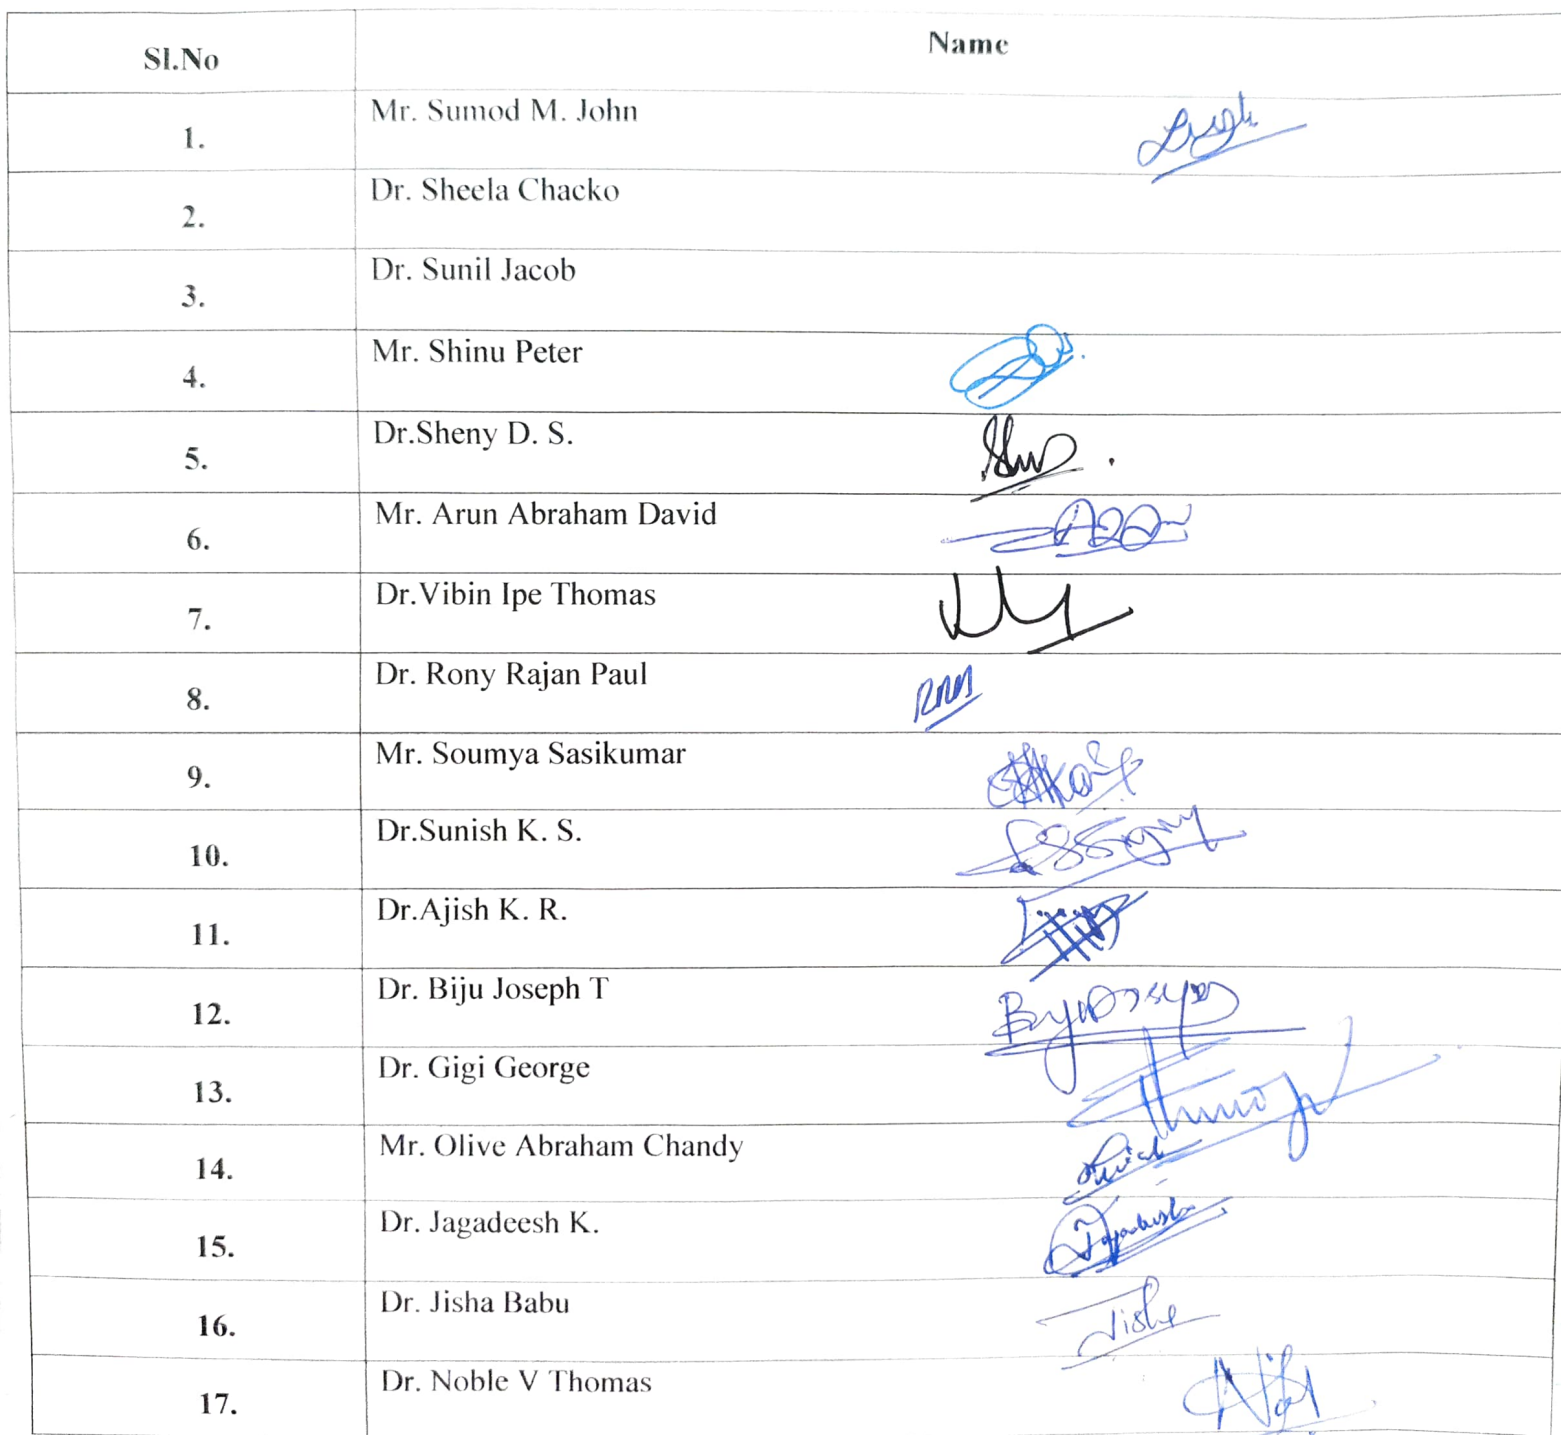 Sl.No Name
1. Mr. Sumod M. John
2. Dr. Sheela Chacko
3. Dr. Sunil Jacob
4. Mr. Shinu Peter
5. Dr.Sheny D. S.
6. Mr. Arun Abraham David
7. Dr.Vibin Ipe Thomas
8. Dr. Rony Rajan Paul
9. Mr. Soumya Sasikumar
10. Dr.Sunish K. S.
11. Dr.Ajish K. R.
12. Dr. Biju Joseph T
13. Dr. Gigi George
14. Mr. Olive Abraham Chandy
15. Dr. Jagadeesh K.
16. Dr. Jisha Babu
17. Dr. Noble V Thomas